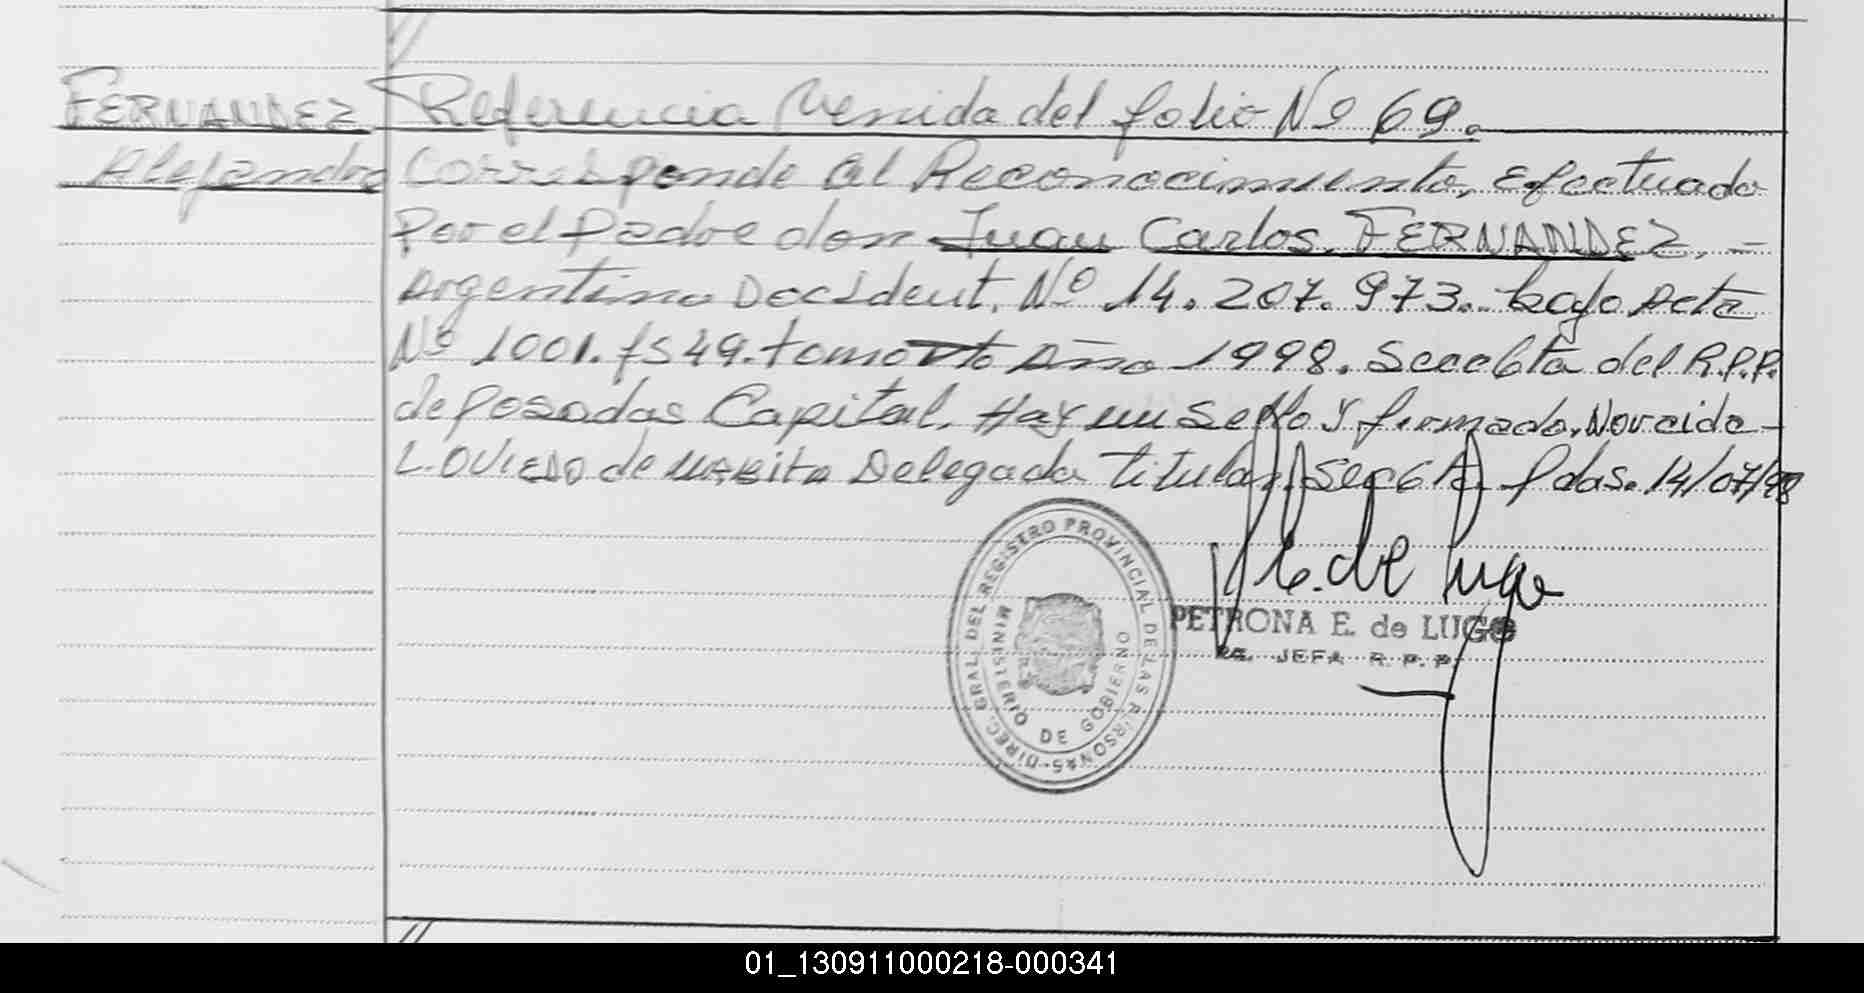 FERNANDEZ Referencia Venida del folio Nº 69.
Alejandro Corresponde al Reconocimiento, efectuado
Por el Padre don Juan Carlos. FERNANDEZ. -
Argentino Doc Ident. Nº 14.207.973.. bajo Acta
Nº 1001. fs 49. tomo Año 1998. Secc 6ta del R.P.P.
de Posadas Capital. Hay un sello y firmado. Noreida -
L. OVIEDO de Delegada Titular. Secc 6ta Pdas. 14/07/98
DIREC. GRAL. DEL REGISTRO PROVINCIAL DE LAS PERSONAS
MINISTERIO DE GOBIERNO
E. de Lugo
PETRONA E. de LUGO
JEFA R. P. P.
01_130911000218-000341